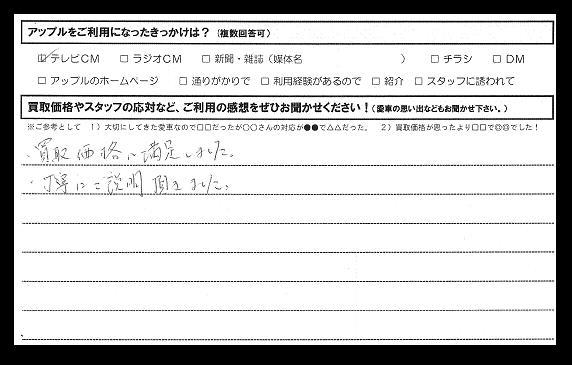 アップルをご利用になったきっかけは？（複数回答可）
☑テレビCM □ラジオCM □新聞・雑誌（媒体名　　　　　　　　） □チラシ □DM
□アップルのホームページ □通りがかりで □利用経験があるので □紹介 □スタッフに誘われて
買取価格やスタッフの応対など、ご利用の感想をぜひお聞かせください！（愛車の思い出などもお聞かせ下さい。）
※ご参考として　1）大切にしてきた愛車なので□□だったが○○さんの対応が●●で△△だった。　2）買取価格が思ったより□□で◎◎でした！
・買取価格に満足しました。
・丁寧にご説明頂きました。